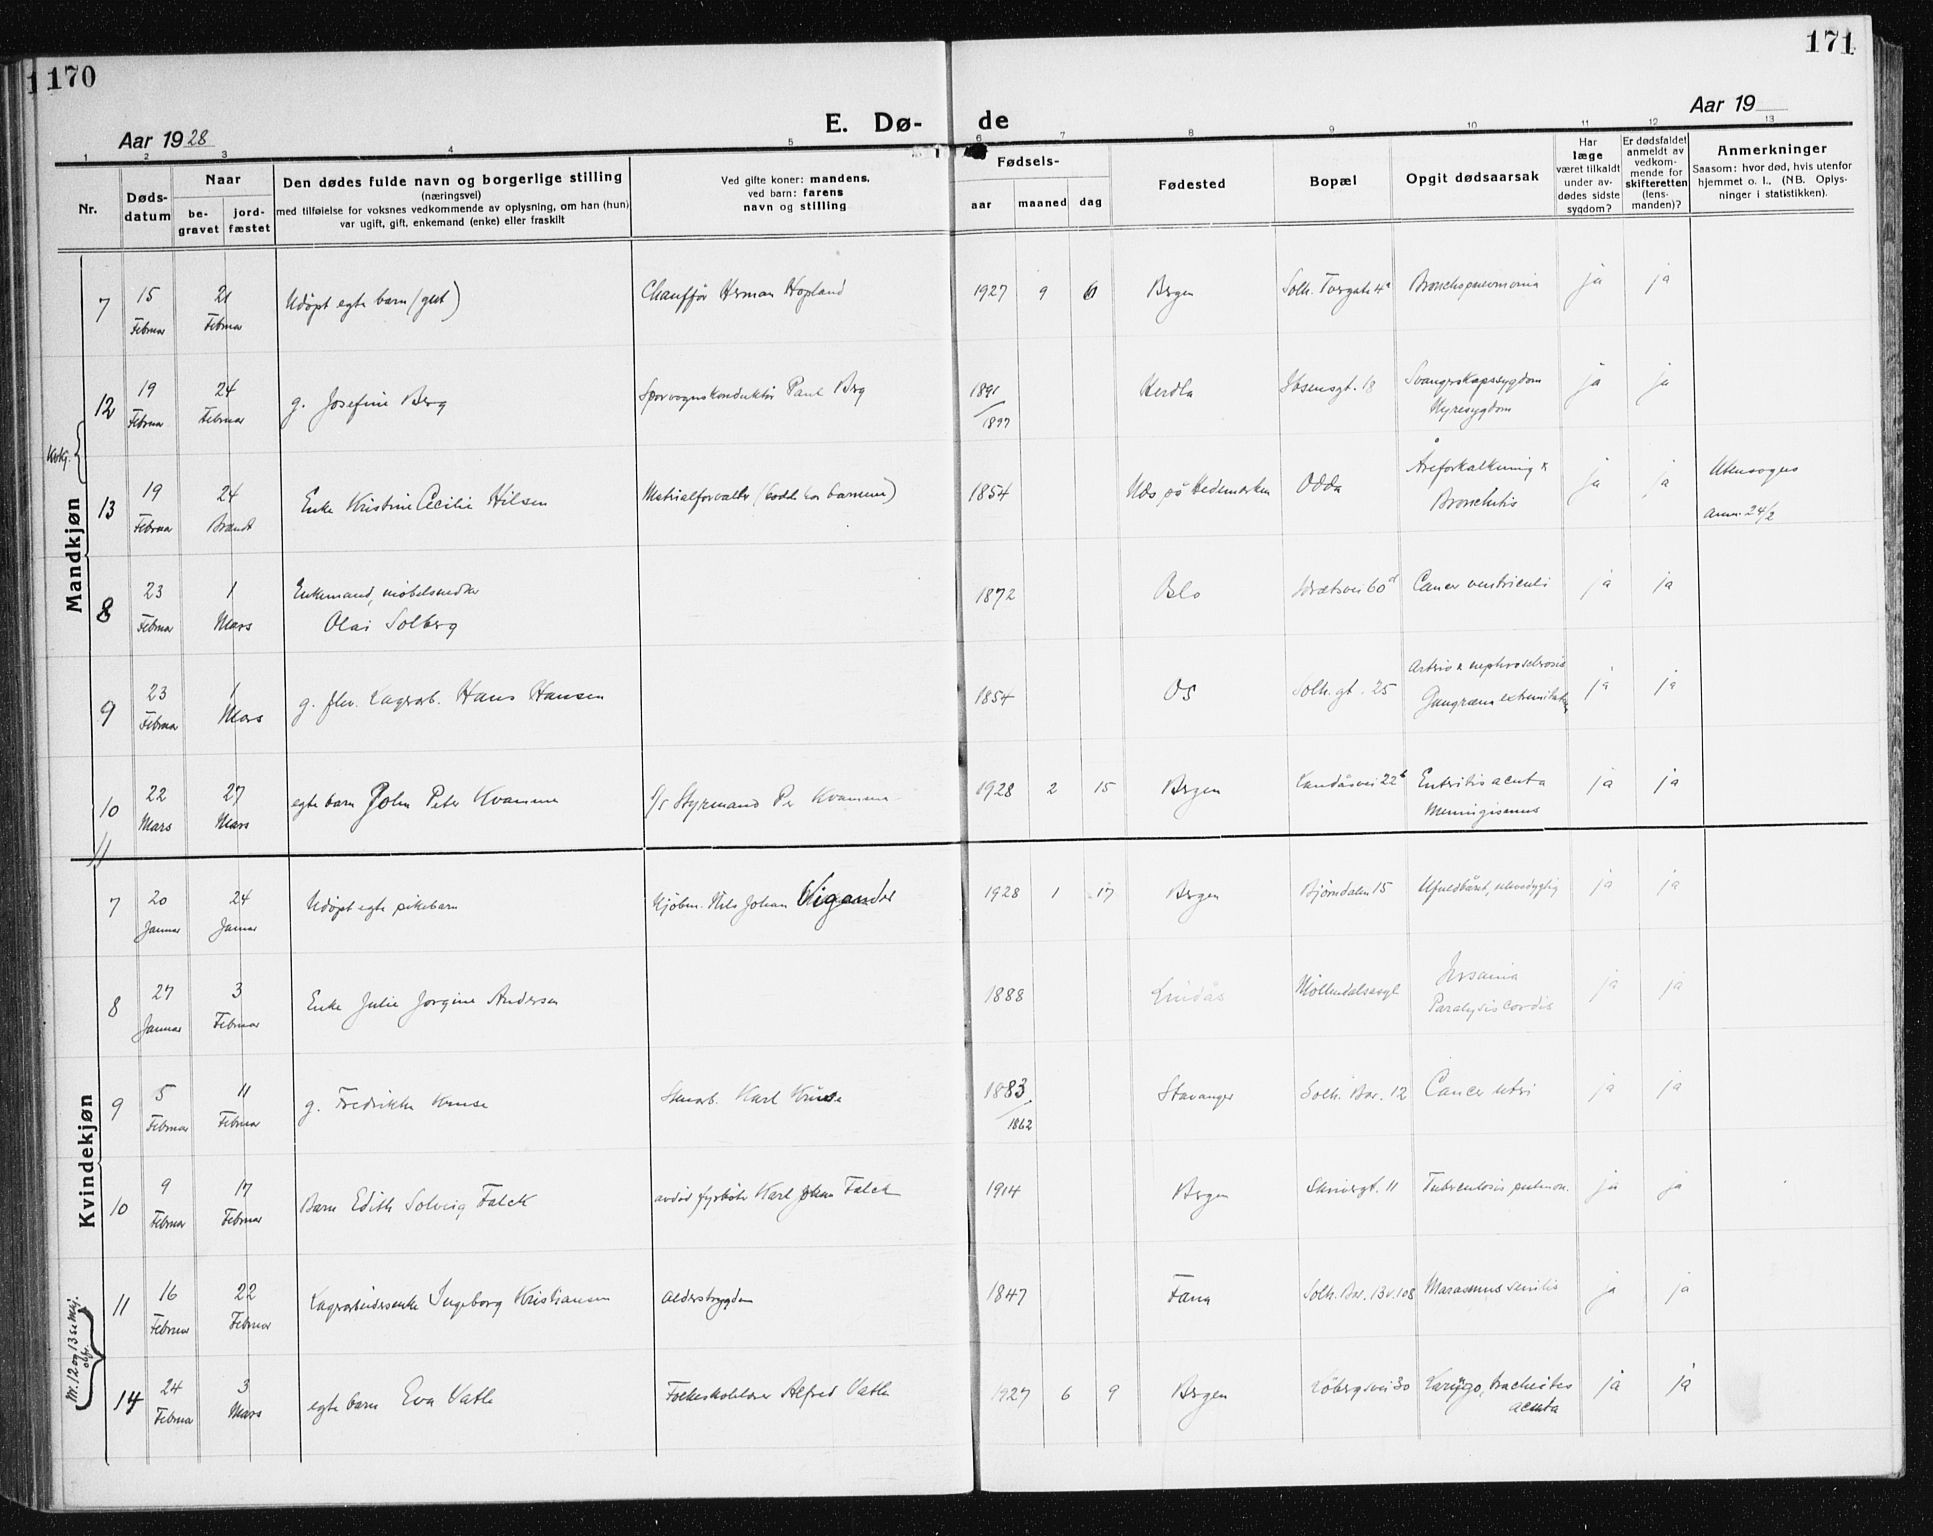 170
171
Aar 1928
E. Dø-
de
Aar 19
1 2 3 4 5 6 7 8 9 10 11 12 13
Nr.
Døds-
datum
Naar
be-
gravet
jord-
fæstet
Den dødes fulde navn og borgerlige stilling
(næringsvei)
med tilføielse for voksnes vedkommende av oplysning, om han (hun)
var ugift, gift, enkemand (enke) eller fraskilt
Ved gifte koner: mandens,
ved barn: farens
navn og stilling
Fødsels-
aar maaned dag
Fødested
Bopæl
Opgit dødsaarsak
Har
læge
været tilkaldt
under av-
dødes sidste
sygdom?
Er dødsfaldet
anmeldt av
vedkom-
mende for
skifteretten
(lens-
manden)?
Anmerkninger
Saasom: hvor død, hvis utenfor
hjemmet o. l., (NB. Oplys-
ninger i statistikken).
Mandkjøn
7 15 Februar 21 Februar Udøpt egte barn (gut) Chauffør Herman Hopland 1927 9 6 Bergen Solh. Torgate 4a Bronchopneumonia ja ja
Kvkj.
12 19 Februar 24 Februar g. Josefine Berg Sporvognskonduktør Paul Berg 1891/1897 Herdla Ibsensgt. 18 Svangerskapssygdom Nyresygdom ja ja
13 19 Februar 24 Brændt Enke Kristine Cecilie Nilsen Materialforvalter (bodde hos barnene) 1854 Nes på Hedemarken Odda Åreforkalkning & Bronchitis ja ja Utensogns Anm. 24/2
8 23 Februar 1 Mars Enkemand, møbelsnedker
Olai Solberg 1872 Oslo Idrætsvei 60d Cancer ventriculi ja ja
9 23 Februar 1 Mars g. fhv. Lagerarb. Hans Hansen 1854 Os Solh. gt. 25 Arterio & nephrosclerosis ja ja
10 22 Mars 27 Mars egte barn John Peter Kvamme Styrmand Per Kvamme 1928 2 15 Bergen Landåsvei 22b Enteritis acuta Meningismus ja ja
11
Kvindekjøn
7 20 Januar 24 Januar Udøpt egte pikebarn Kjøbm. Nils Johan Wigander 1928 1 17 Bergen Bjørndalen 15 Ufuldbåret, ja ja
8 27 Januar 3 Februar Enke Julie Jorgine Andersen 1888 Lindås Møllendalsasyl Insania Paralysis cordis ja ja
9 5 Februar 11 Februar g. Fredrikke Kruse Stenarb. Karl Kruse 1883/1862 Stavanger Solh. Bar. 12 Cancer uteri ja ja
10 9 Februar 17 Februar Barn Edith Solveig Falck avdød fyrbøter Karl Johan Falck 1914 Bergen Skrivergt. 11 Tuberculosis pulmon. ja ja
11 16 Februar 22 Februar Lagerarbeidersenke Ingeborg Kristiansen alderstrygden 1847 Fana Solh. Bar. 13 v. 108 Marasmus senilis ja ja
Nr. 12 og 13 se Mkj. ofr.
14 24 Februar 3 Mars egte barn Eva Vatle Folkeskolelærer Alfred Vatle 1927 6 9 Bergen Løbergsvei 30 Laryngo, tracheitis acuta ja ja